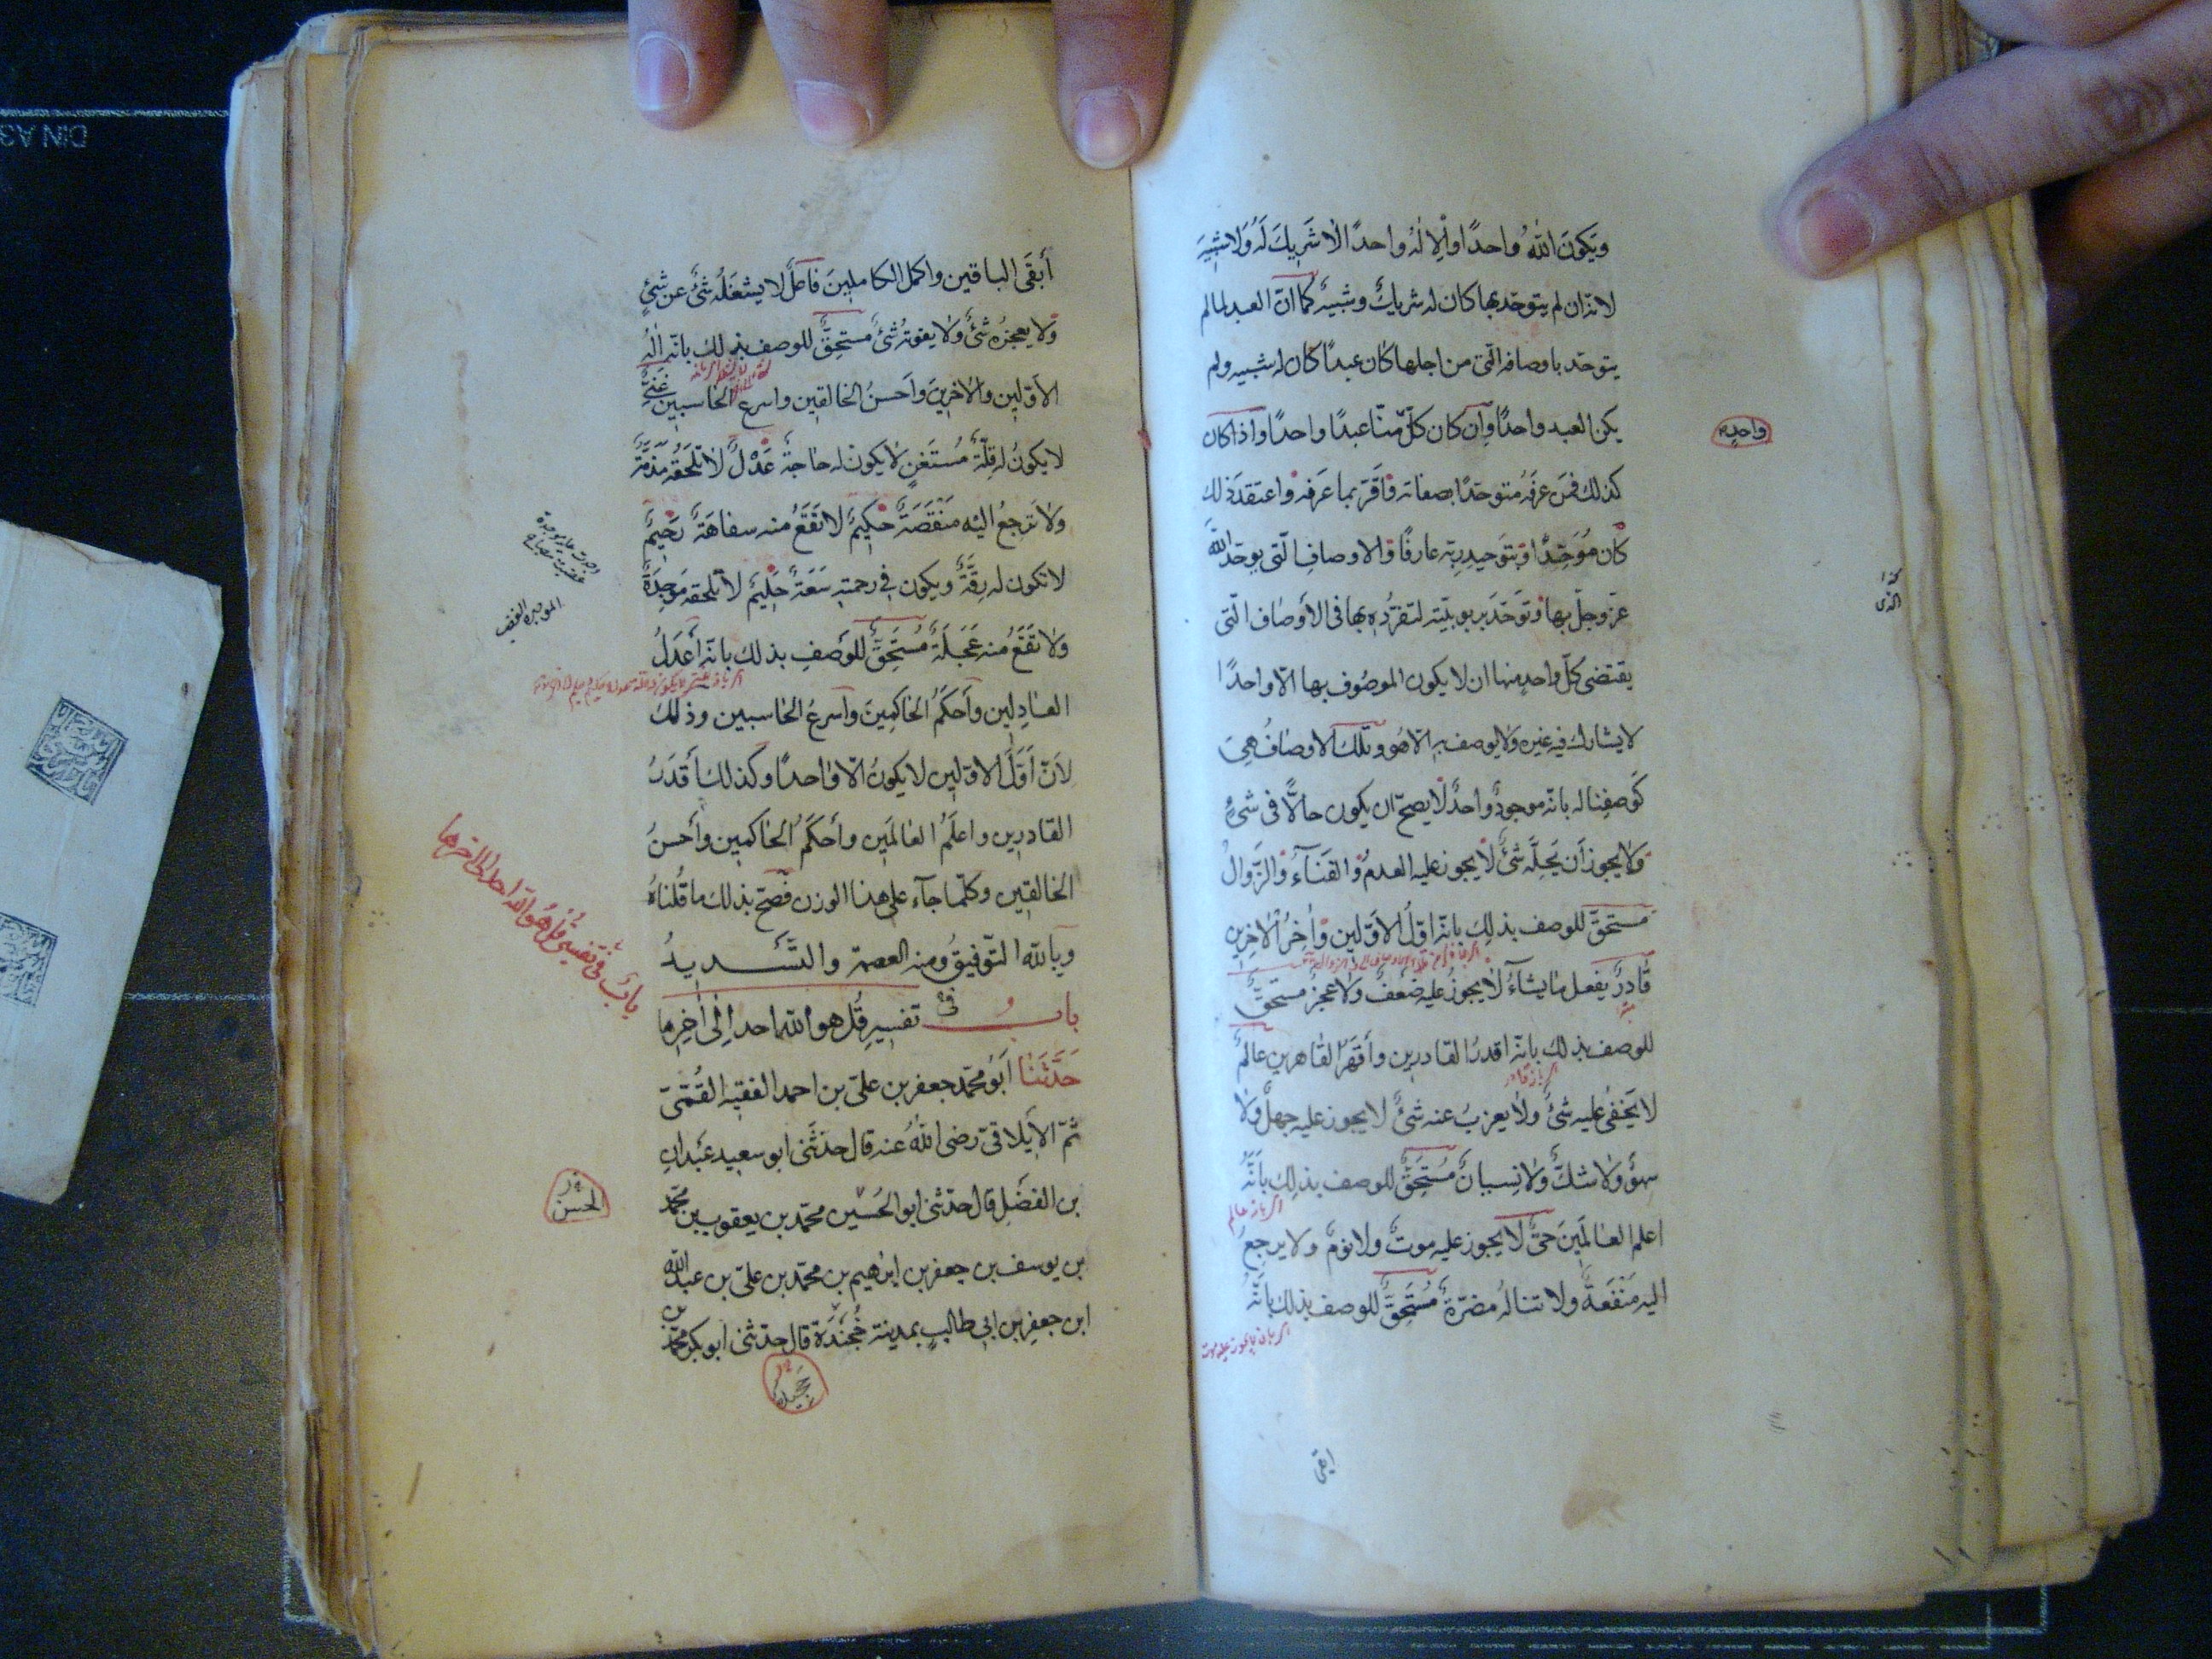 ويكون الله واحدًا والإله واحدًا الا شريك له ولا شبيه
لانه ان لم يتوحد بها كان له شريك وشبيه كما ان العبد لما لم
يتوحد باوصافه التي من اجلها كان عبدًا كان له شبيه ولم
يكن العبد واحدًا وإن كان كلّ منّا عبدًا واحدًا واذا كان
واحده
كذلك فمن عرفه متوحدًا بصفاته واقرّ بما عرفه واعتقد ذلك
كان موحّدًا وبتوحيد ربّه عارفًا والاوصاف الّتي توحّد الله
عزّ وجلّ بها وتوحّد بربوبيّته لتفرّده بها في الأوصاف الّتي
يقتضي كلّ واحد منها ان لا يكون الموصوف بها الّا واحدًا
لا يشاركه فيه غيره ولا يوصف به الّا هو وتلك الاوصاف هي
كوصفنا له بانّه موجود واحد لا يصحّ ان يكون حالًّا في شيء
ولا يجوز أن يحلّه شئ لا يجوز عليه العدم والفناء والزّوال
مستحقّ للوصف بذلك بانّه اوّل الاوّلين وآخر الآخرين
قادر يفعل ما يشاء لا يجوز عليه ضعف ولا عجز مستحقّ
للوصف بذلك بانّه اقدر القادرين وأقهر القاهرين عالم
لا يخفى عليه شئ ولا يعزب عنه شئ لا يجوز عليه جهل ولا
سهو ولا شكّ ولا نسيان مستحقّ للوصف بذلك بأنّه
اعلم العالمين حيّ لا يجوز عليه موت ولا نوم ولا يرجع
اليه منفعة ولا تناله مضرّة مستحقّ للوصف بذلك بانّه
ابقى
أبقى الباقين واكمل الكاملين فاعل لا يشغله شئ عن شئ
ولا يعجزه شئ ولا يفوته شئ مستحقّ للوصف بذلك بانّه اله
الأوّلين والآخرين وأحسن الخالقين واسرع الحاسبين غنيّ
لا يكون له قلّة مستغن لا يكون له حاجة عدل لا تلحقه مذمّة
ولا ترجع اليه منقصة حكيم لا تقع منه سفاهة رحيم
لا تكون له رقّة ويكون في رحمته سعة حليم لا تلحقه موجدة
ولا تقع منه عجلة مستحقّ للوصف بذلك بانّه أعدل
العادلين وأحكم الحاكمين وأسرع الحاسبين وذلك
لأنّ أوّل الاوّلين لا يكون الّا واحدًا وكذلك أقدر
القادرين واعلم العالمين وأحكم الحاكمين وأحسن
الخالقين وكلّما جاء على هذا الوزن فصحّ بذلك ما قلناه
وبالله التّوفيق ومنه العصمة والتّسديد
باب في تفسير قل هو الله احد إلى آخرها
باب في تفسير قل هو الله احد إلى اخرها
حدّثنا أبو محمّد جعفر بن عليّ بن احمد الفقيه القمّيّ
ثمّ الإيلاقيّ رضي الله عنه قال حدّثني ابو سعيد عبدان
بن الفضل قال حدّثني ابو الحسين محمّد بن يعقوب بن محمّد
الحسن
بن يوسف بن جعفر بن ابرهيم بن محمّد بن عليّ بن عبد الله
ابن جعفر بن ابي طالب بمدينة خجندة قال حدّثني ابو بكر محمّد بن